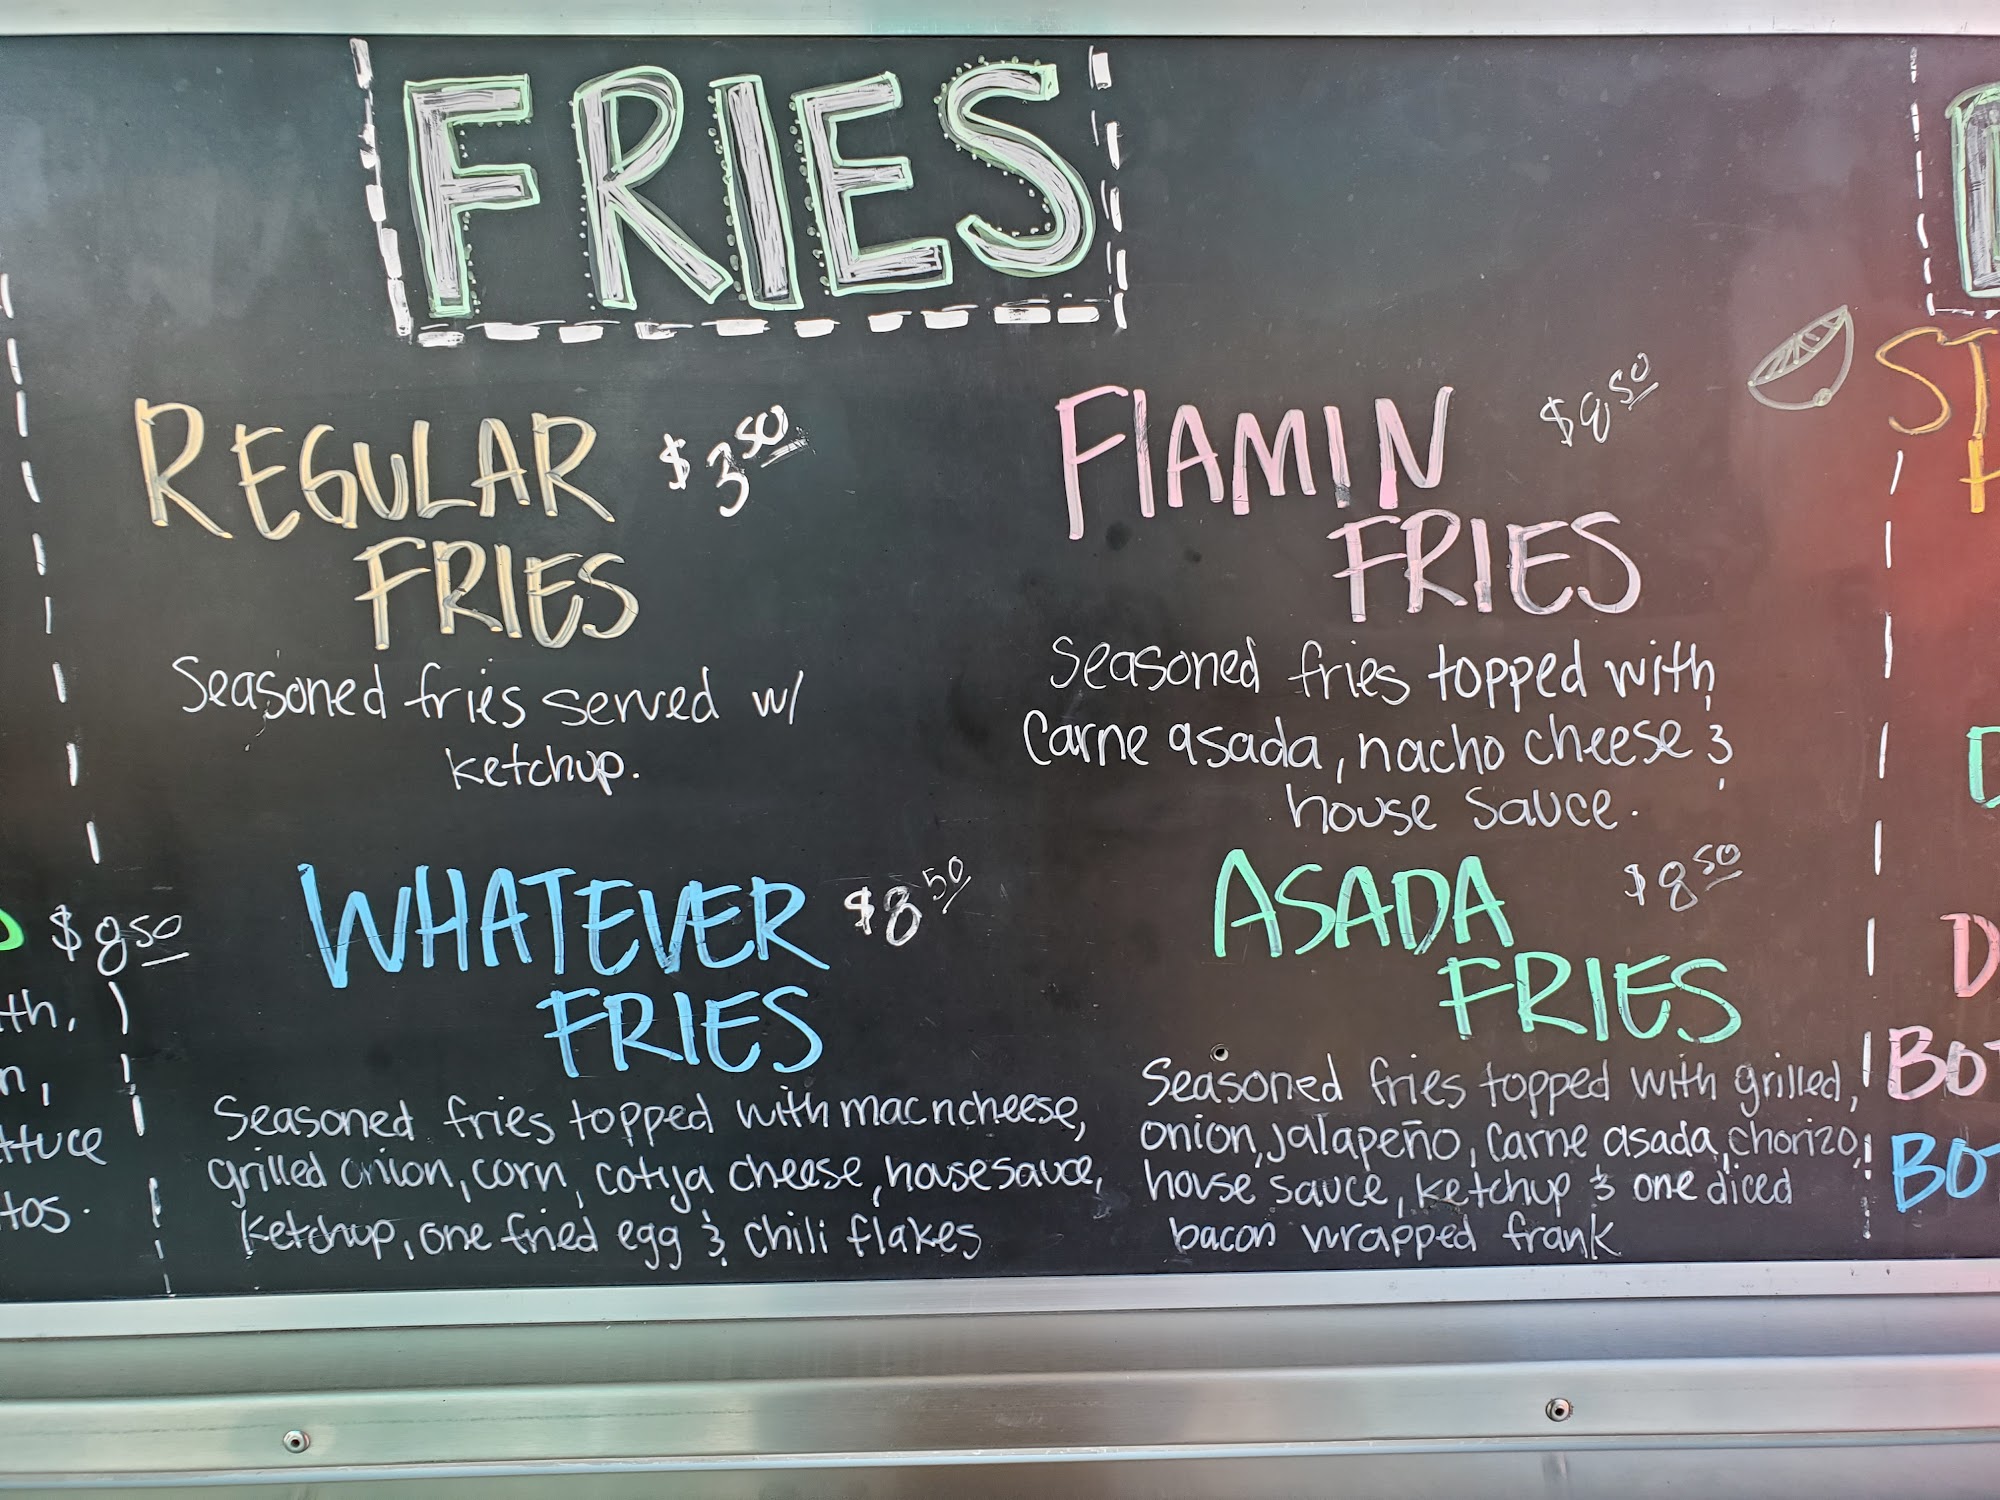 FRIES
REGULAR $3.50
FRIES
Seasoned fries served w/
ketchup.
FlAMIN $8.50
FRIES
Seasoned fries topped with
Carne asada, nacho cheese &
house sauce.
WHATEVER $8.50
FRIES
Seasoned fries topped with macncheese,
grilled onion, corn, cotija cheese, house sauce,
ketchup, one fried egg & chili flakes
ASADA $8.50
FRIES
Seasoned fries topped with grilled,
onion, jalapeño, Carne asada, chorizo,
house sauce, ketchup & one diced
bacon wrapped frank
$8.50
ttuce
tos.
ST
BOT
BOT